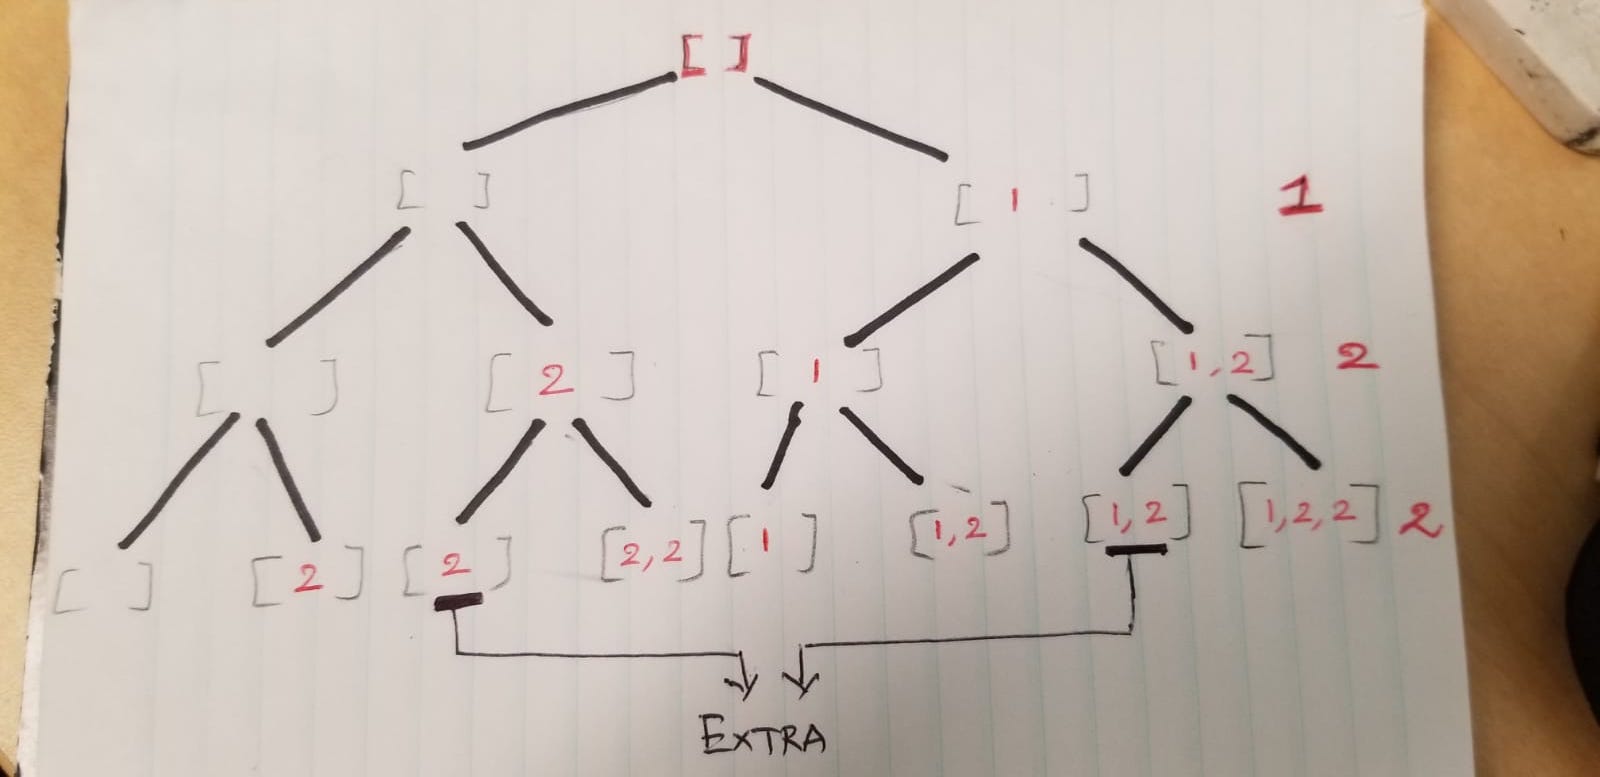 [ ]
[ ] [ 1 ] 1
[ ] [ 2 ] [ 1 ] [1,2] 2
[ ] [ 2 ] [ 2 ] [2,2] [ 1 ] [1,2] [1,2] [1,2,2] 2
EXTRA